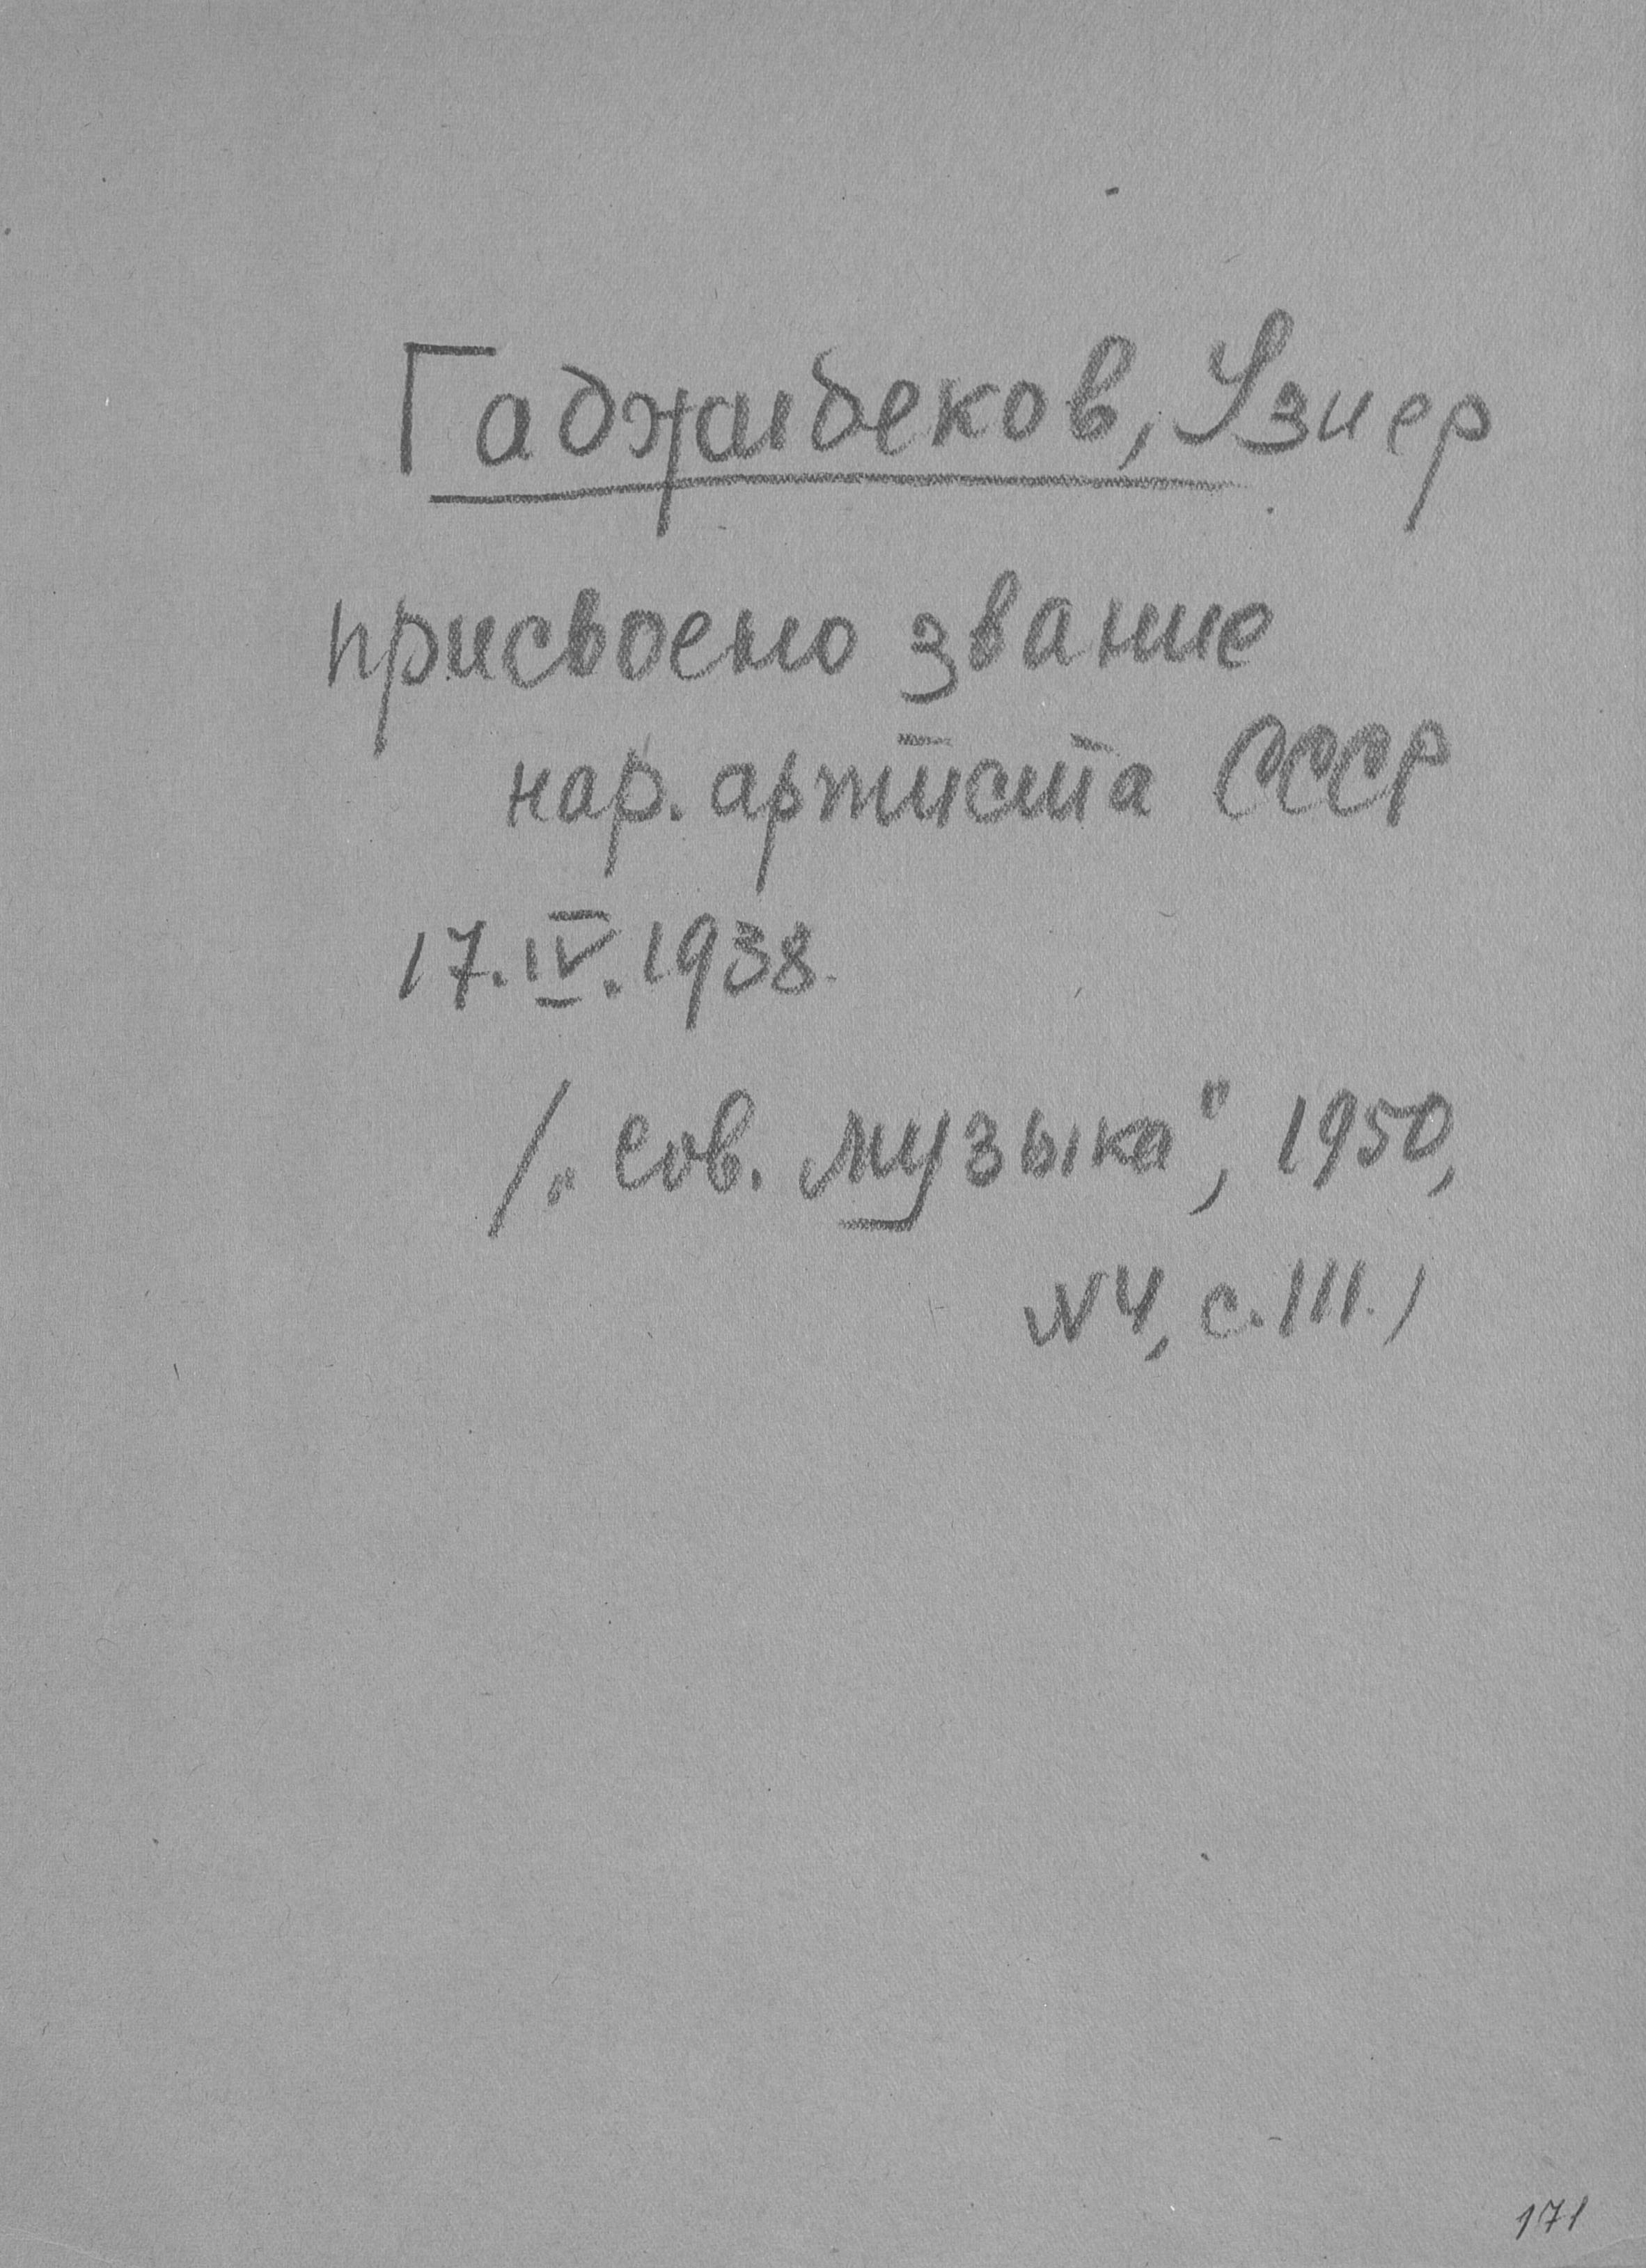 Гаджибеков, Узиер
присвоено звание
нар. артиста СССР
17.IV.1938.
/„Сов. музыка", 1950,
№4, с. 111./
171